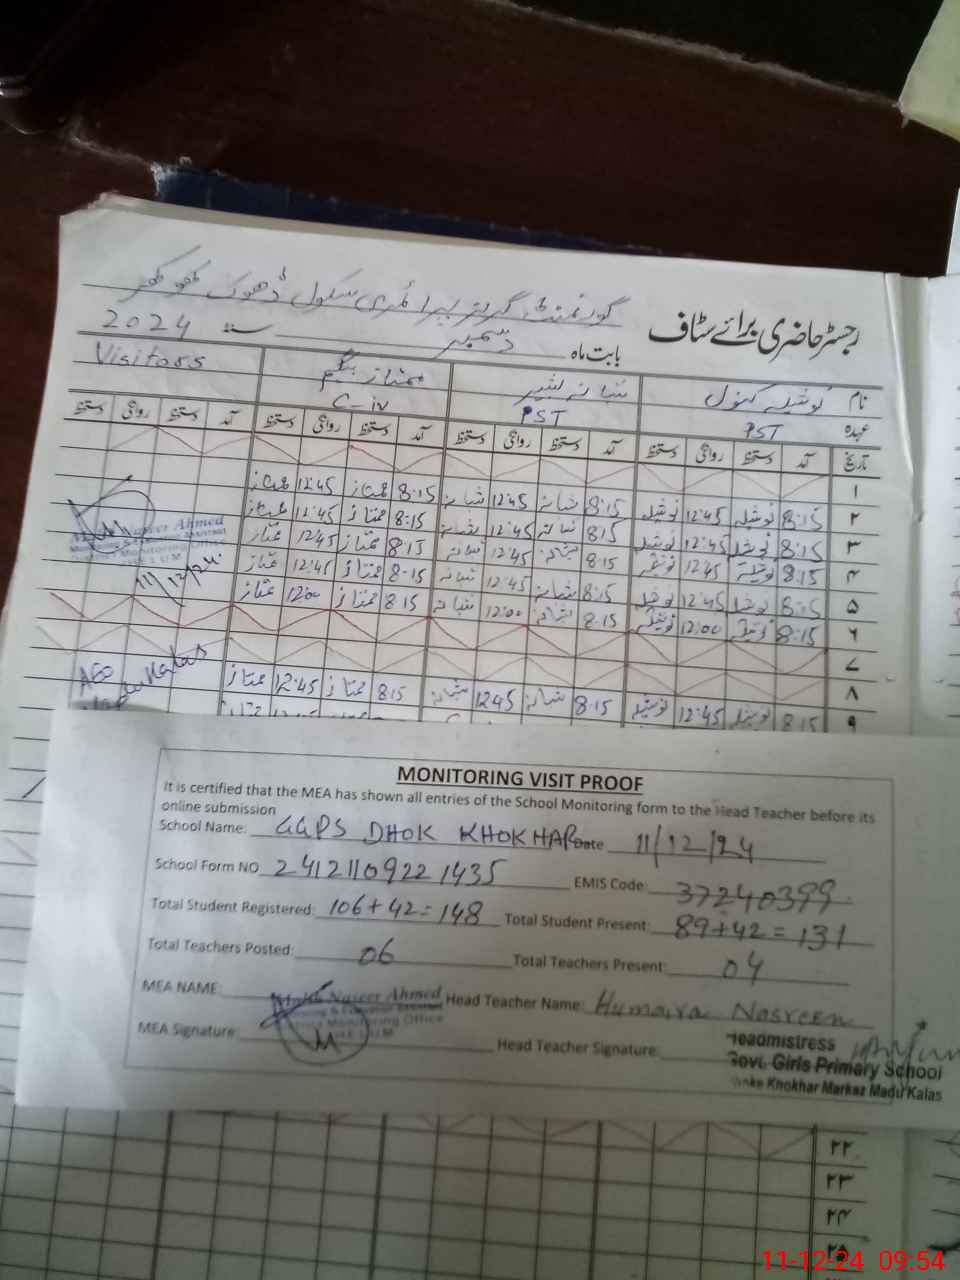 گورنمنٹ گرلز پرائمری سکول ڈھوک کھوکھر
رجسٹر حاضری برائے سٹاف
بابت ماہ دسمبر سنہ 2024
نام نوشیلہ کنول شبانہ بشیر ممتاز بیگم Visitors
عہدہ PST PST C-iv
تاریخ آمد دستخط روانگی دستخط آمد دستخط روانگی دستخط آمد دستخط روانگی دستخط آمد دستخط روانگی دستخط
۱
۲ 8:15 نوشیلہ 12:45 نوشیلہ 8:15 شبانہ 12:45 شبانہ 8:15 ممتاز 12:45 ممتاز
۳ 8:15 نوشیلہ 12:45 نوشیلہ 8:15 شبانہ 12:45 شبانہ 8:15 ممتاز 12:45 ممتاز
۴ 8:15 نوشیلہ 12:45 نوشیلہ 8:15 شبانہ 12:45 شبانہ 8:15 ممتاز 12:45 ممتاز
۵ 8:15 نوشیلہ 12:45 نوشیلہ 8:15 شبانہ 12:45 شبانہ 8:15 ممتاز 12:45 ممتاز
۶ 8:15 نوشیلہ 12:00 نوشیلہ 8:15 شبانہ 12:00 شبانہ 8:15 ممتاز 12:00 ممتاز
۷
۸
۹ 8:15 نوشیلہ 12:45 نوشیلہ 8:15 شبانہ 12:45 شبانہ 8:15 ممتاز 12:45 ممتاز
Naseer Ahmed
Monitoring & Evaluation Assistant
Monitoring Office
JHELUM
11/12/24
AEO
Madu Kalas
MONITORING VISIT PROOF
It is certified that the MEA has shown all entries of the School Monitoring form to the Head Teacher before its
online submission
School Name: GGPS DHOK KHOKHAR Date 11/12/24
School Form NO 2412110922 1435 EMIS Code: 37240399
Total Student Registered: 106+42=148 Total Student Present: 89+42=131
Total Teachers Posted: 06 Total Teachers Present: 04
MEA NAME: Naseer Ahmed Head Teacher Name: Humaira Nasreen
Monitoring & Evaluation Assistant
Monitoring Office
JHELUM
MEA Signature: Head Teacher Signature:
Headmistress
Govt. Girls Primary School
Khokhar Markaz Madu Kalas
۲۲
۲۳
۲۴
۲۵
11-12-24 09:54